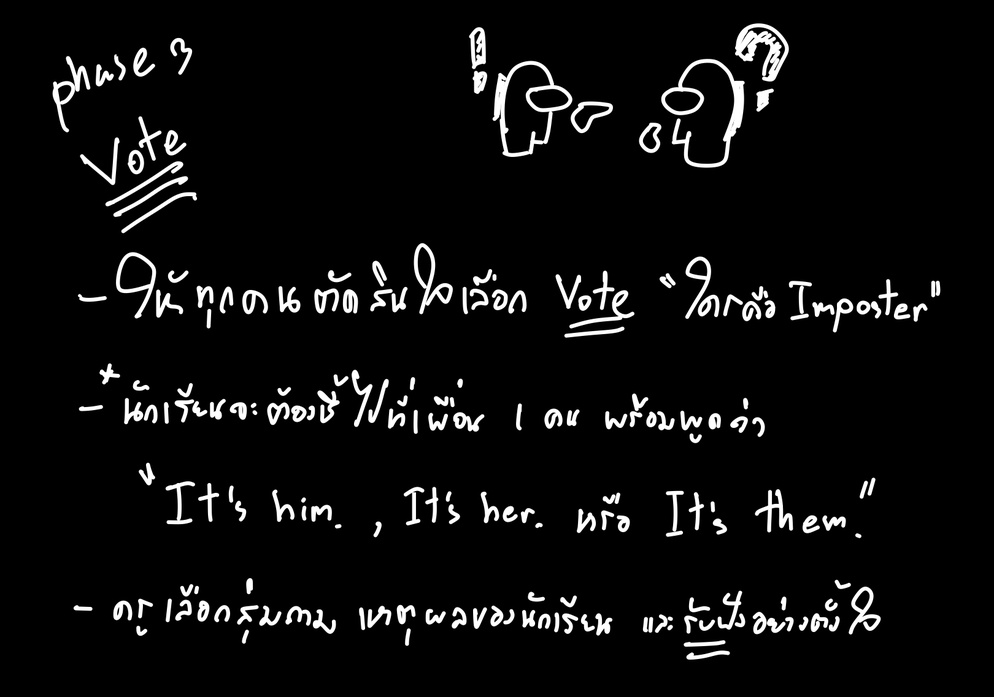 phase 3
Vote
- ให้ทุกคนตัดสินใจเลือก Vote "ใครคือ Imposter"
- *นักเรียนจะต้องชี้ไปที่เพื่อน 1 คน พร้อมพูดว่า
"It's him. , It's her. หรือ It's them."
- ครูเลือกสุ่มถาม เหตุผลของนักเรียน และรับฟังอย่างตั้งใจ